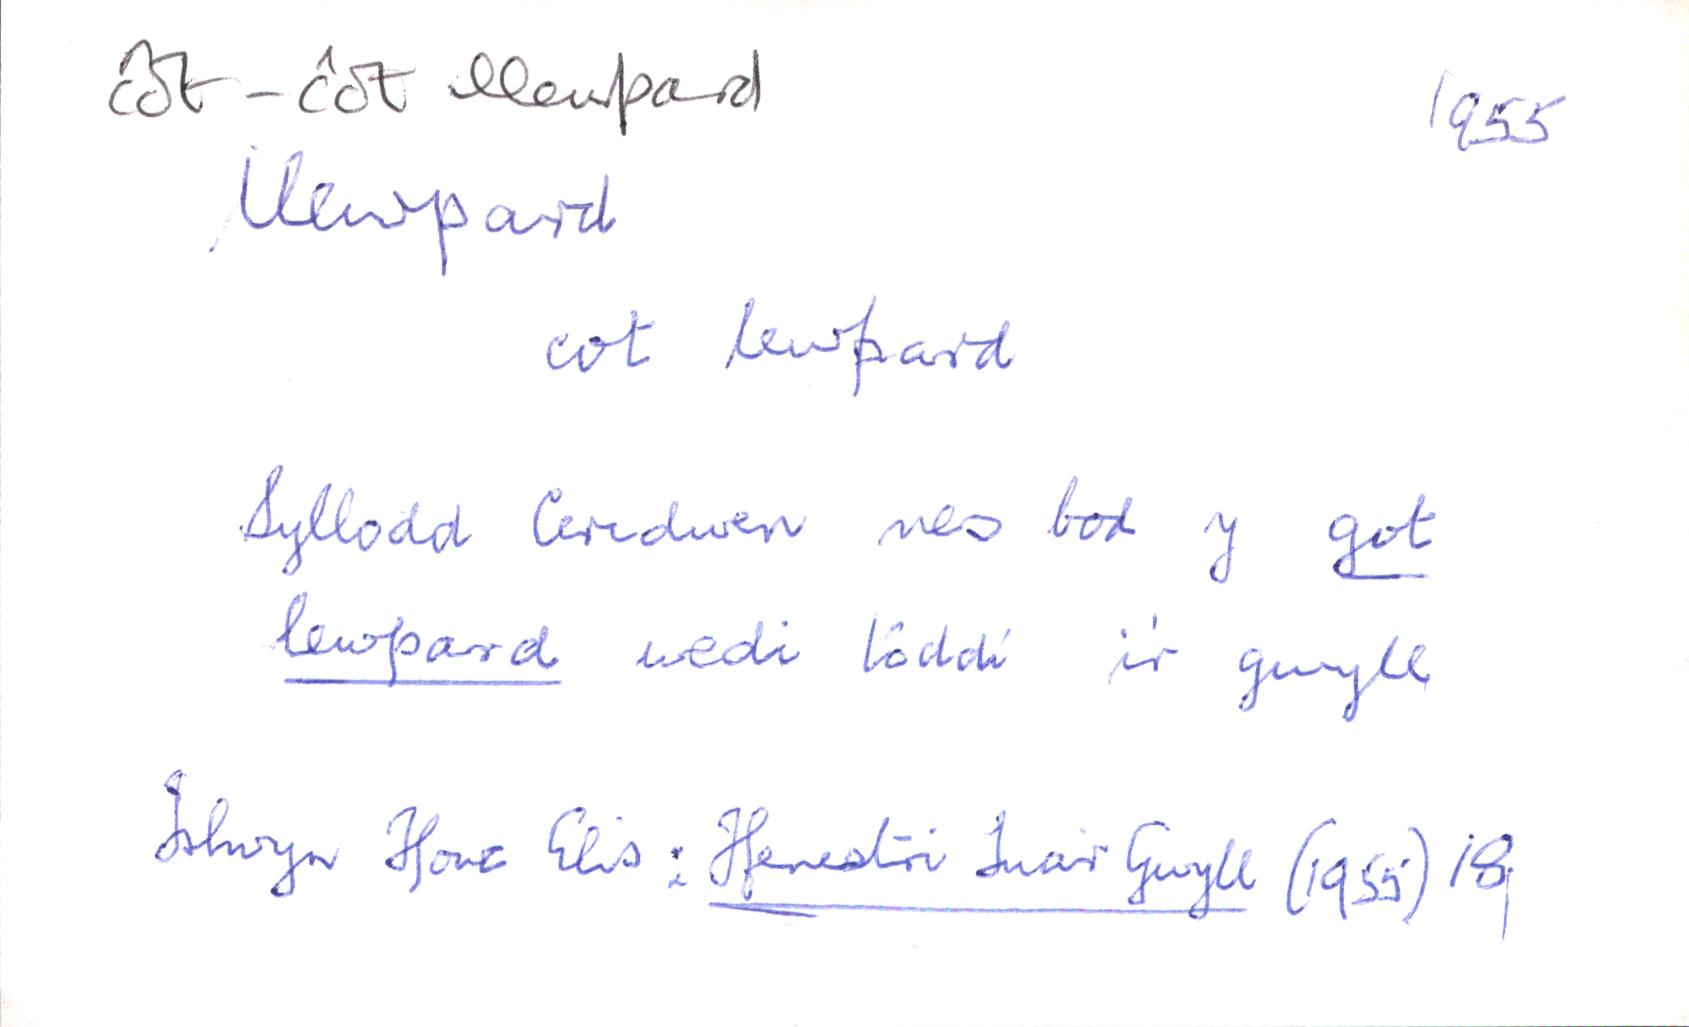 côt – côt llewpard
1955
llewpard
cot lewpard
Syllodd Ceridwen nes bod y got
lewpard wedi toddi i'r gwyll
Islwyn Ffowc Elis : Ffenestri Tua'r Gwyll (1955) 18